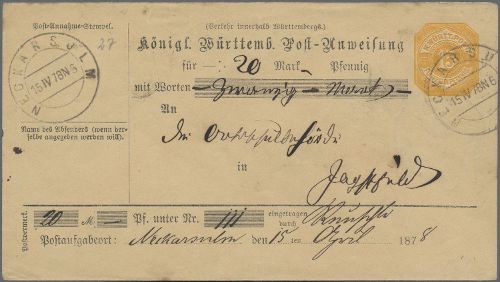 Post-Annahme-Stempel.
(Verkehr innerhalb Württembergs.)
27
NECKARSULM
15 IV 78 N 6
Königl. Württemb. Post-Anweisung
für 20 Mark Pfennig
mit Worten Zwanzig Mark
An
die Ortsschulbehörde
in
Jagstfeld
Name des Absenders (wenn derselbe
angegeben werden will).
NECKARSU
15 IV 78 N 6
Postvermerk.
20 M. Pf. unter Nr. 111 eingetragen durch
Postaufgabeort: Neckarsulm den 15 ten April 1878